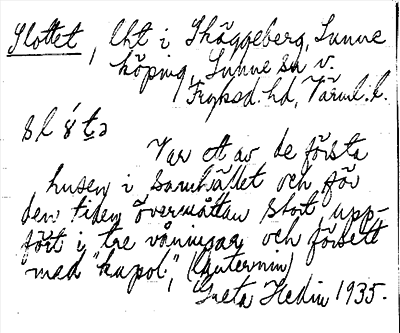 Slottet, lht i Skäggeberg, Sunne
köping, Sunne sn v.
Fryksd. hd, Värml. l.
sl ó̈tə
Var ett av de första
husen i samhället och för
den tiden övermåttan stort, upp-
fört i tre våningar och försett
med "kupol", (lanternin)
Greta Hedin 1935.